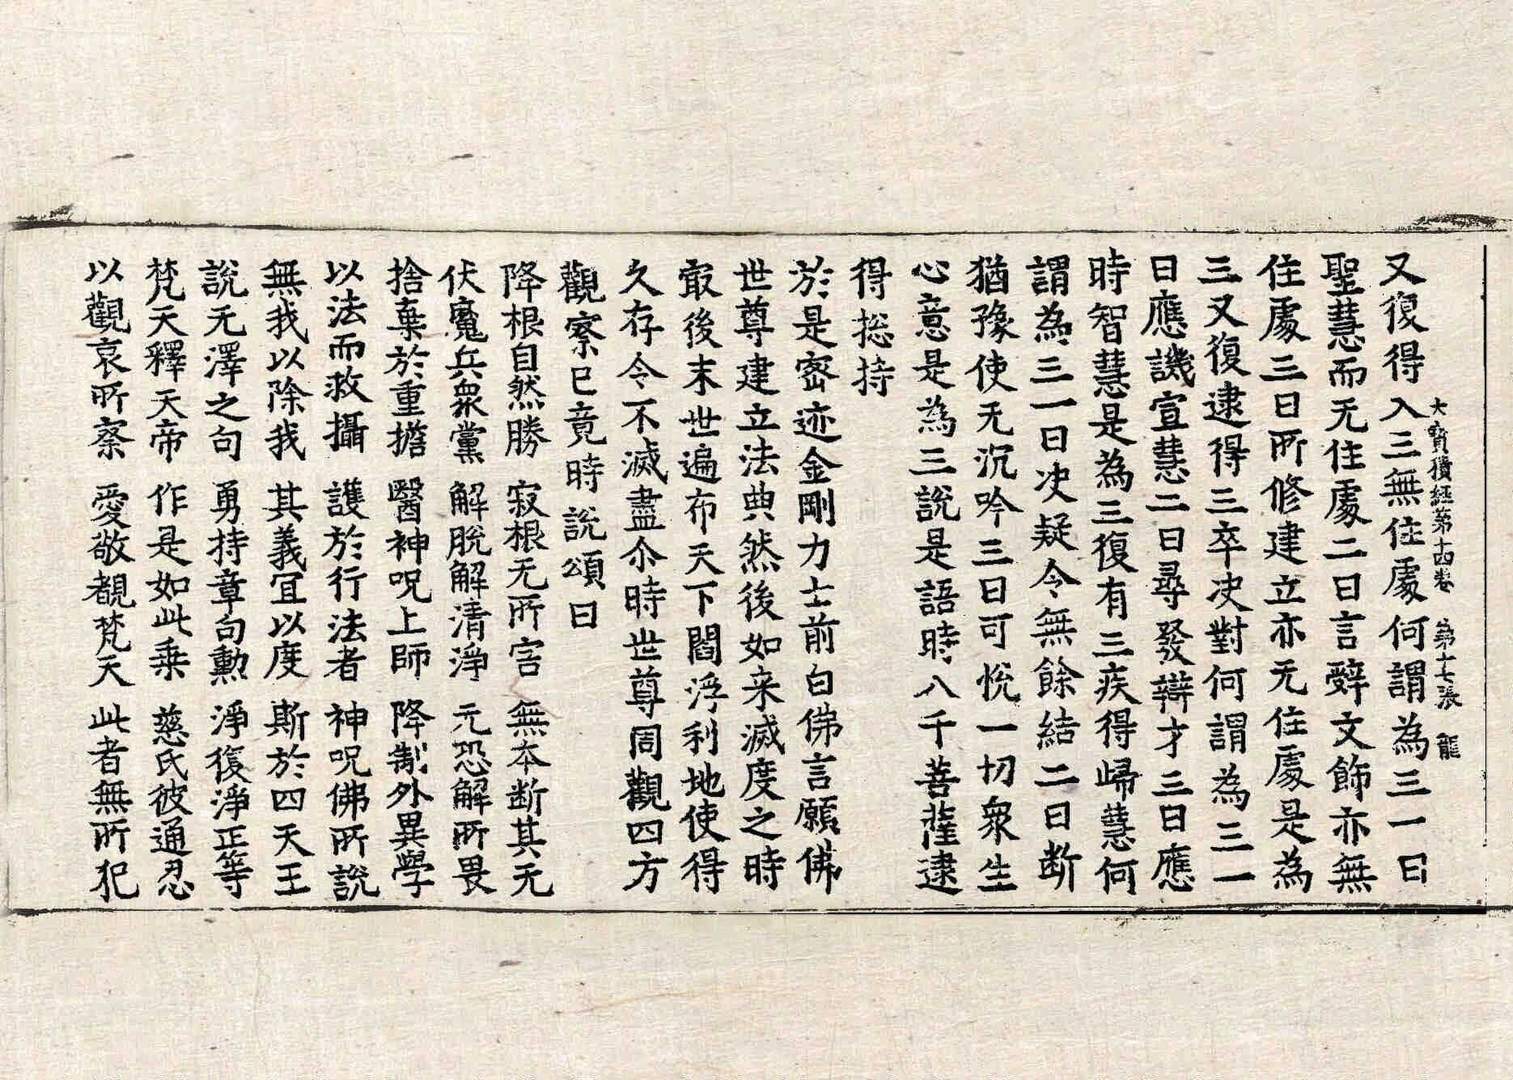 大寶積經第十四卷 第十七張 龍
又復得入三無住處何謂為三一曰
聖慧而无住處二曰言辭文飾亦無
住處三曰所修建立亦无住處是為
三又復逮得三卒决對何謂為三一
曰應譏宣慧二曰尋發辯才三曰應
時智慧是為三復有三疾得歸慧何
謂為三一曰决疑令無餘結二曰断
猶豫使无沉吟三曰可悅一切衆生
心意是為三說是語時八千菩薩逮
得捴持
於是密迹金剛力士前白佛言願佛
世尊建立法典然後如来滅度之時
㝡後末世遍布天下閻浮利地使得
久存令不滅盡尒時世尊周觀四方
觀察已竟時說頌曰
降根自然勝 寂根无所害 無本断其无
伏魔兵衆黨 解脫解清淨 无恐解所畏
捨棄於重擔 醫神呪上師 降制外異學
以法而救攝 護於行法者 神呪佛所說
無我以除我 其義宜以度 斯於四天王
說无澤之句 勇持章句勲 淨復淨正等
梵天釋天帝 作是如此乘 慈氏彼通忍
以觀哀所察 愛敬覩梵天 此者無所犯